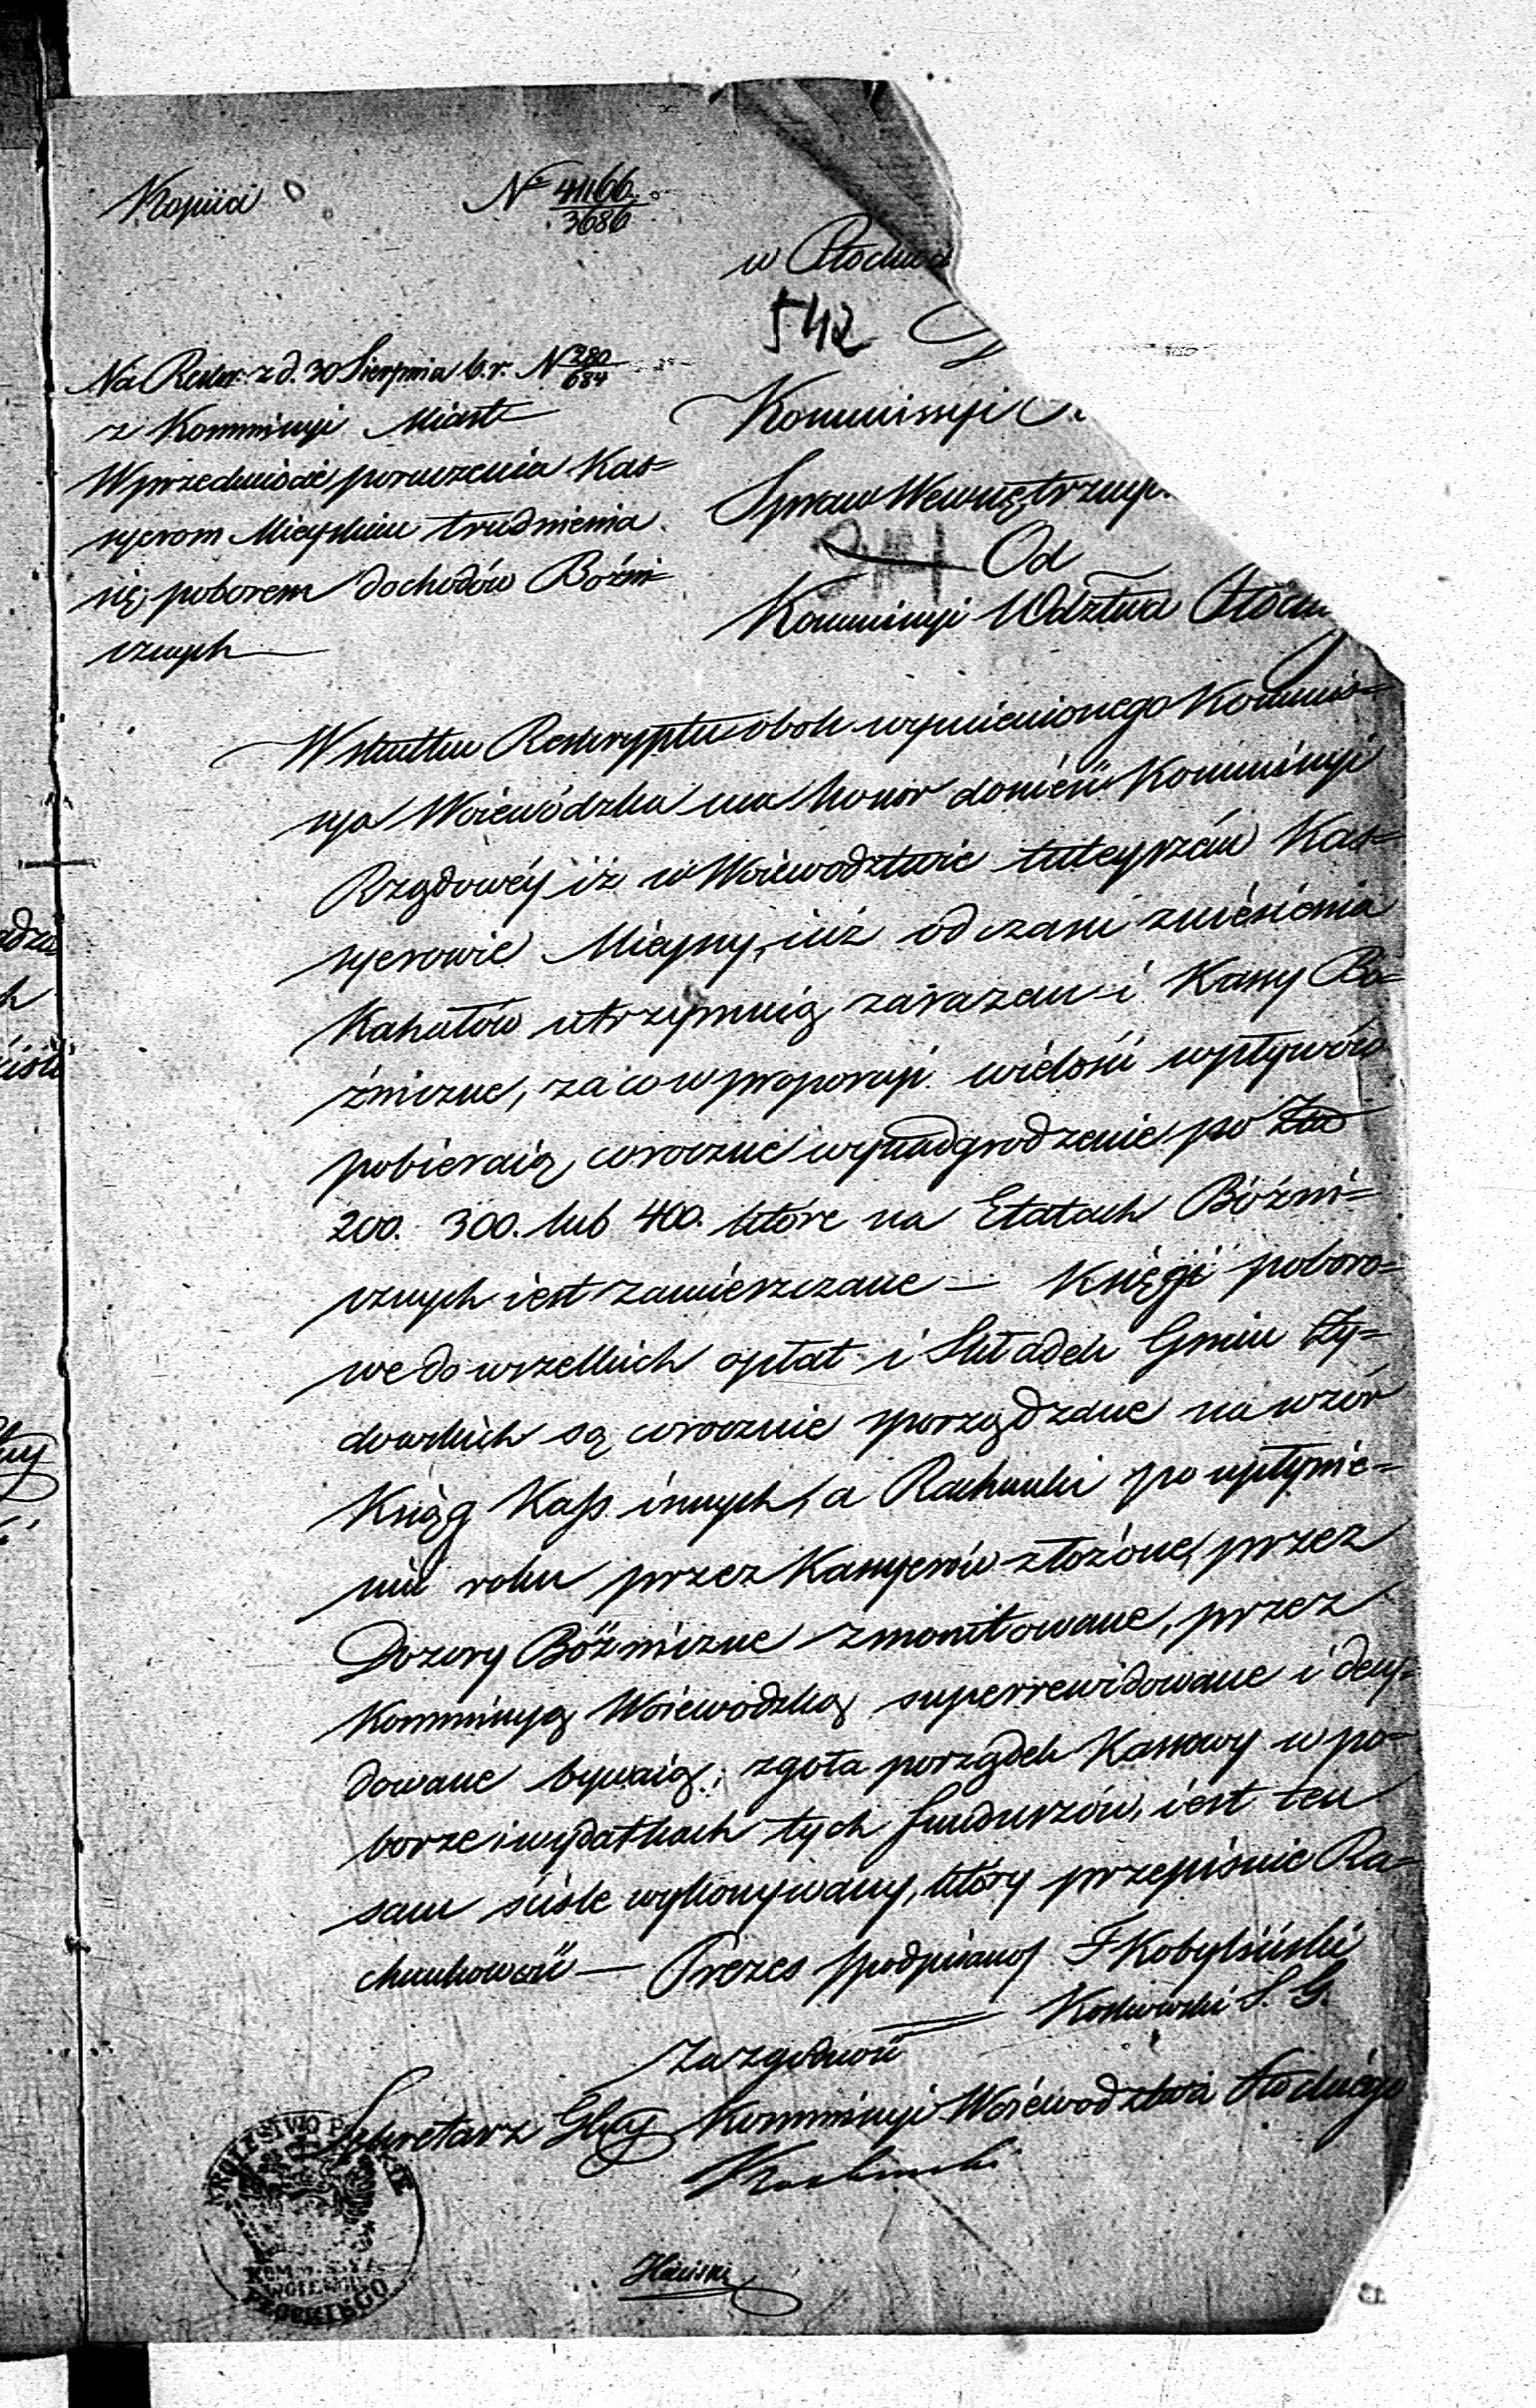 Kopiia
N 41166
3686
w Płocku d
542
Na Reskr: z d. 30 Sierpnia b. r. N 280
684
z Kommissyi Miast
W przedmiocie poruczenia Kas=
syerom Mieyskim trudnienia
się poborem dochodów Boźni=
cznych
Kommissyi
Spraw Wewnętrznych
Od
Kommissyi Wdztwa Płocki
W skutku Reskryptu obok wymienionego Kommis=
sya Woiewódzka ma honor donieść Kommissyi
Rządowéy iż w Woiewodztwie tuteyszém Kas=
syerowie Mieyscy, iuż od czasu zniesienia
Kahałów utrzymuią zarazem i Kassy Bo=
źniczne, za co w proporcyi wielości wpływów
pobieraią coroczne wynadgrodzenie po Złp
200. 300. lub 400. które na Etatach Bóźni=
cznych iest zamieszczane — Księgi poboro=
we do wszelkich opłat i Składek Gmin Ży=
dowskich są corocznie sporządzane na wzór
Ksiąg Kass innych, a Rachunki po upłynie=
niu roku przez Kassyerów złożone, przez
Dozory Bóźniczne zmonitowane, przez
Kommissyą Woiewódzką superrewidowane i decy=
dowane bywaią; zgoła porządek Kassowy w po=
borze i wydatkach tych funduszów, iest ten
sam ściśle wykonywany, który przepisuie Ra=
chunkowość — Prezes /podpisano/ F Kobyliński
Koskowski S. G.
Za zgodność
Sekretarz Glny Kommissyi Woiewodztwa Płockiego
KROLESTWO POLSKIE
KOMMISSYA
WOIEWODZ
PŁOCKIEGO